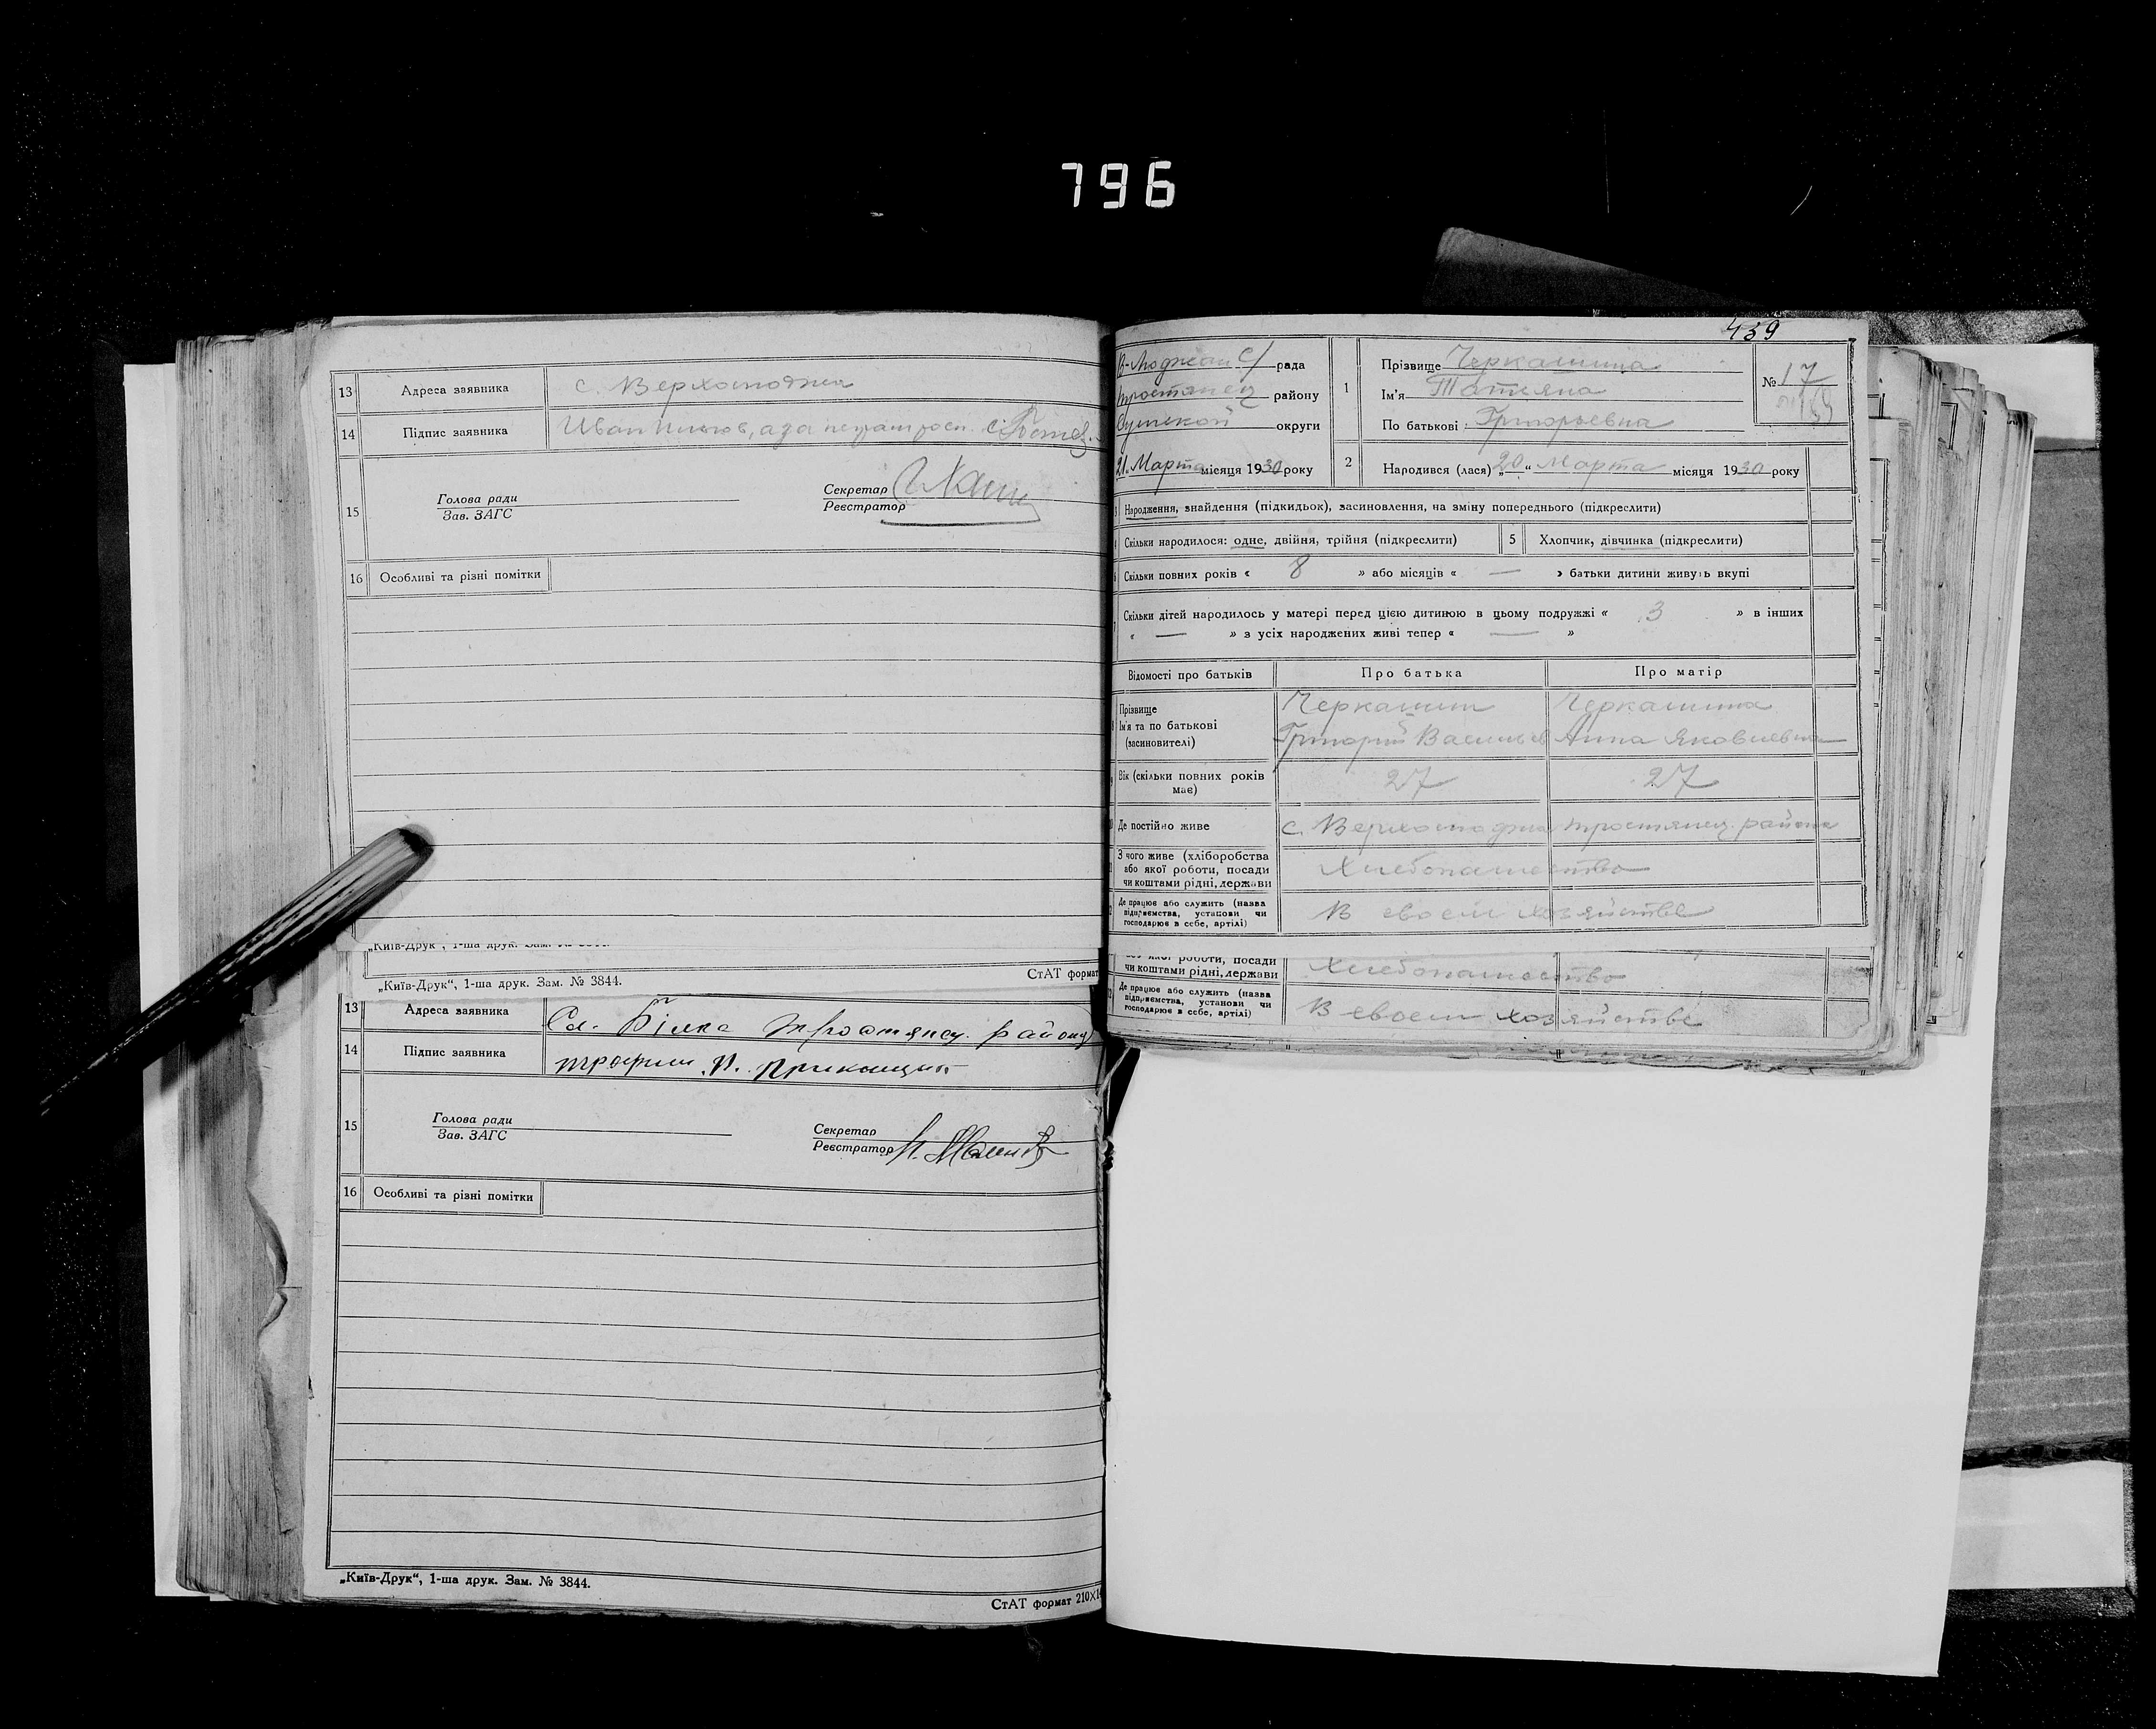 796
13 Адреса заявника с. Верхолюджа
14 Підпис заявника Иван
15 Голова ради
Зав. ЗАГС
Секретар
Реєстратор
16 Особливі та різні помітки
„Київ-Друк", 1-ша друк. Зам. №
„Київ-Друк", 1-ша друк. Зам. № 3844.
СтАТ формат
13 Адреса заявника Сл. Білка Тростянец. району
14 Підпис заявника трофим П.
15 Голова ради
Зав. ЗАГС
Секретар
Реєстратор
16 Особливі та різні помітки
„Київ-Друк", 1-ша друк. Зам. № 3844.
СтАТ формат 210×14
439
В-Люджан С/ рада
тростянец району
Сумской округи
21 Марта місяця 1930 року
1 Прізвище Черкашина
Ім'я Татьяна
По батькові Григорьевна
№ 17
2 Народився (лася) „20" Марта місяця 1930 року
Народження, знайдення (підкидьок), засиновлення, на зміну попереднього (підкреслити)
Скільки народилося: одне, двійня, трійня (підкреслити)
5 Хлопчик, дівчинка (підкреслити)
Скільки повних років « 8 » або місяців « — » батьки дитини живуть вкупі
Скільки дітей народилось у матері перед цією дитиною в цьому подружжі « 3 » в інших
« — » з усіх народжених живі тепер « — »
Відомості про батьків Про батька Про матір
Прізвище Черкашин Черкашина
Ім'я та по батькові Григорий Васильев Анна Яковлевна
(засиновителі)
Вік (скільки повних років має) 27 27
Де постійно живе с. Верхолюджа тростянец. района
З чого живе (хліборобства
або якої роботи, посади
чи коштами рідні, держави Хлебопашество
Де працює або служить (назва
підприємства, установи чи
господарює в себе, артілі) В своем хозяйстве
або якої роботи, посади
чи коштами рідні, держави Хлебопашество
Де працює або служить (назва
підприємства, установи чи
господарює в себе, артілі) В своем хозяйстве